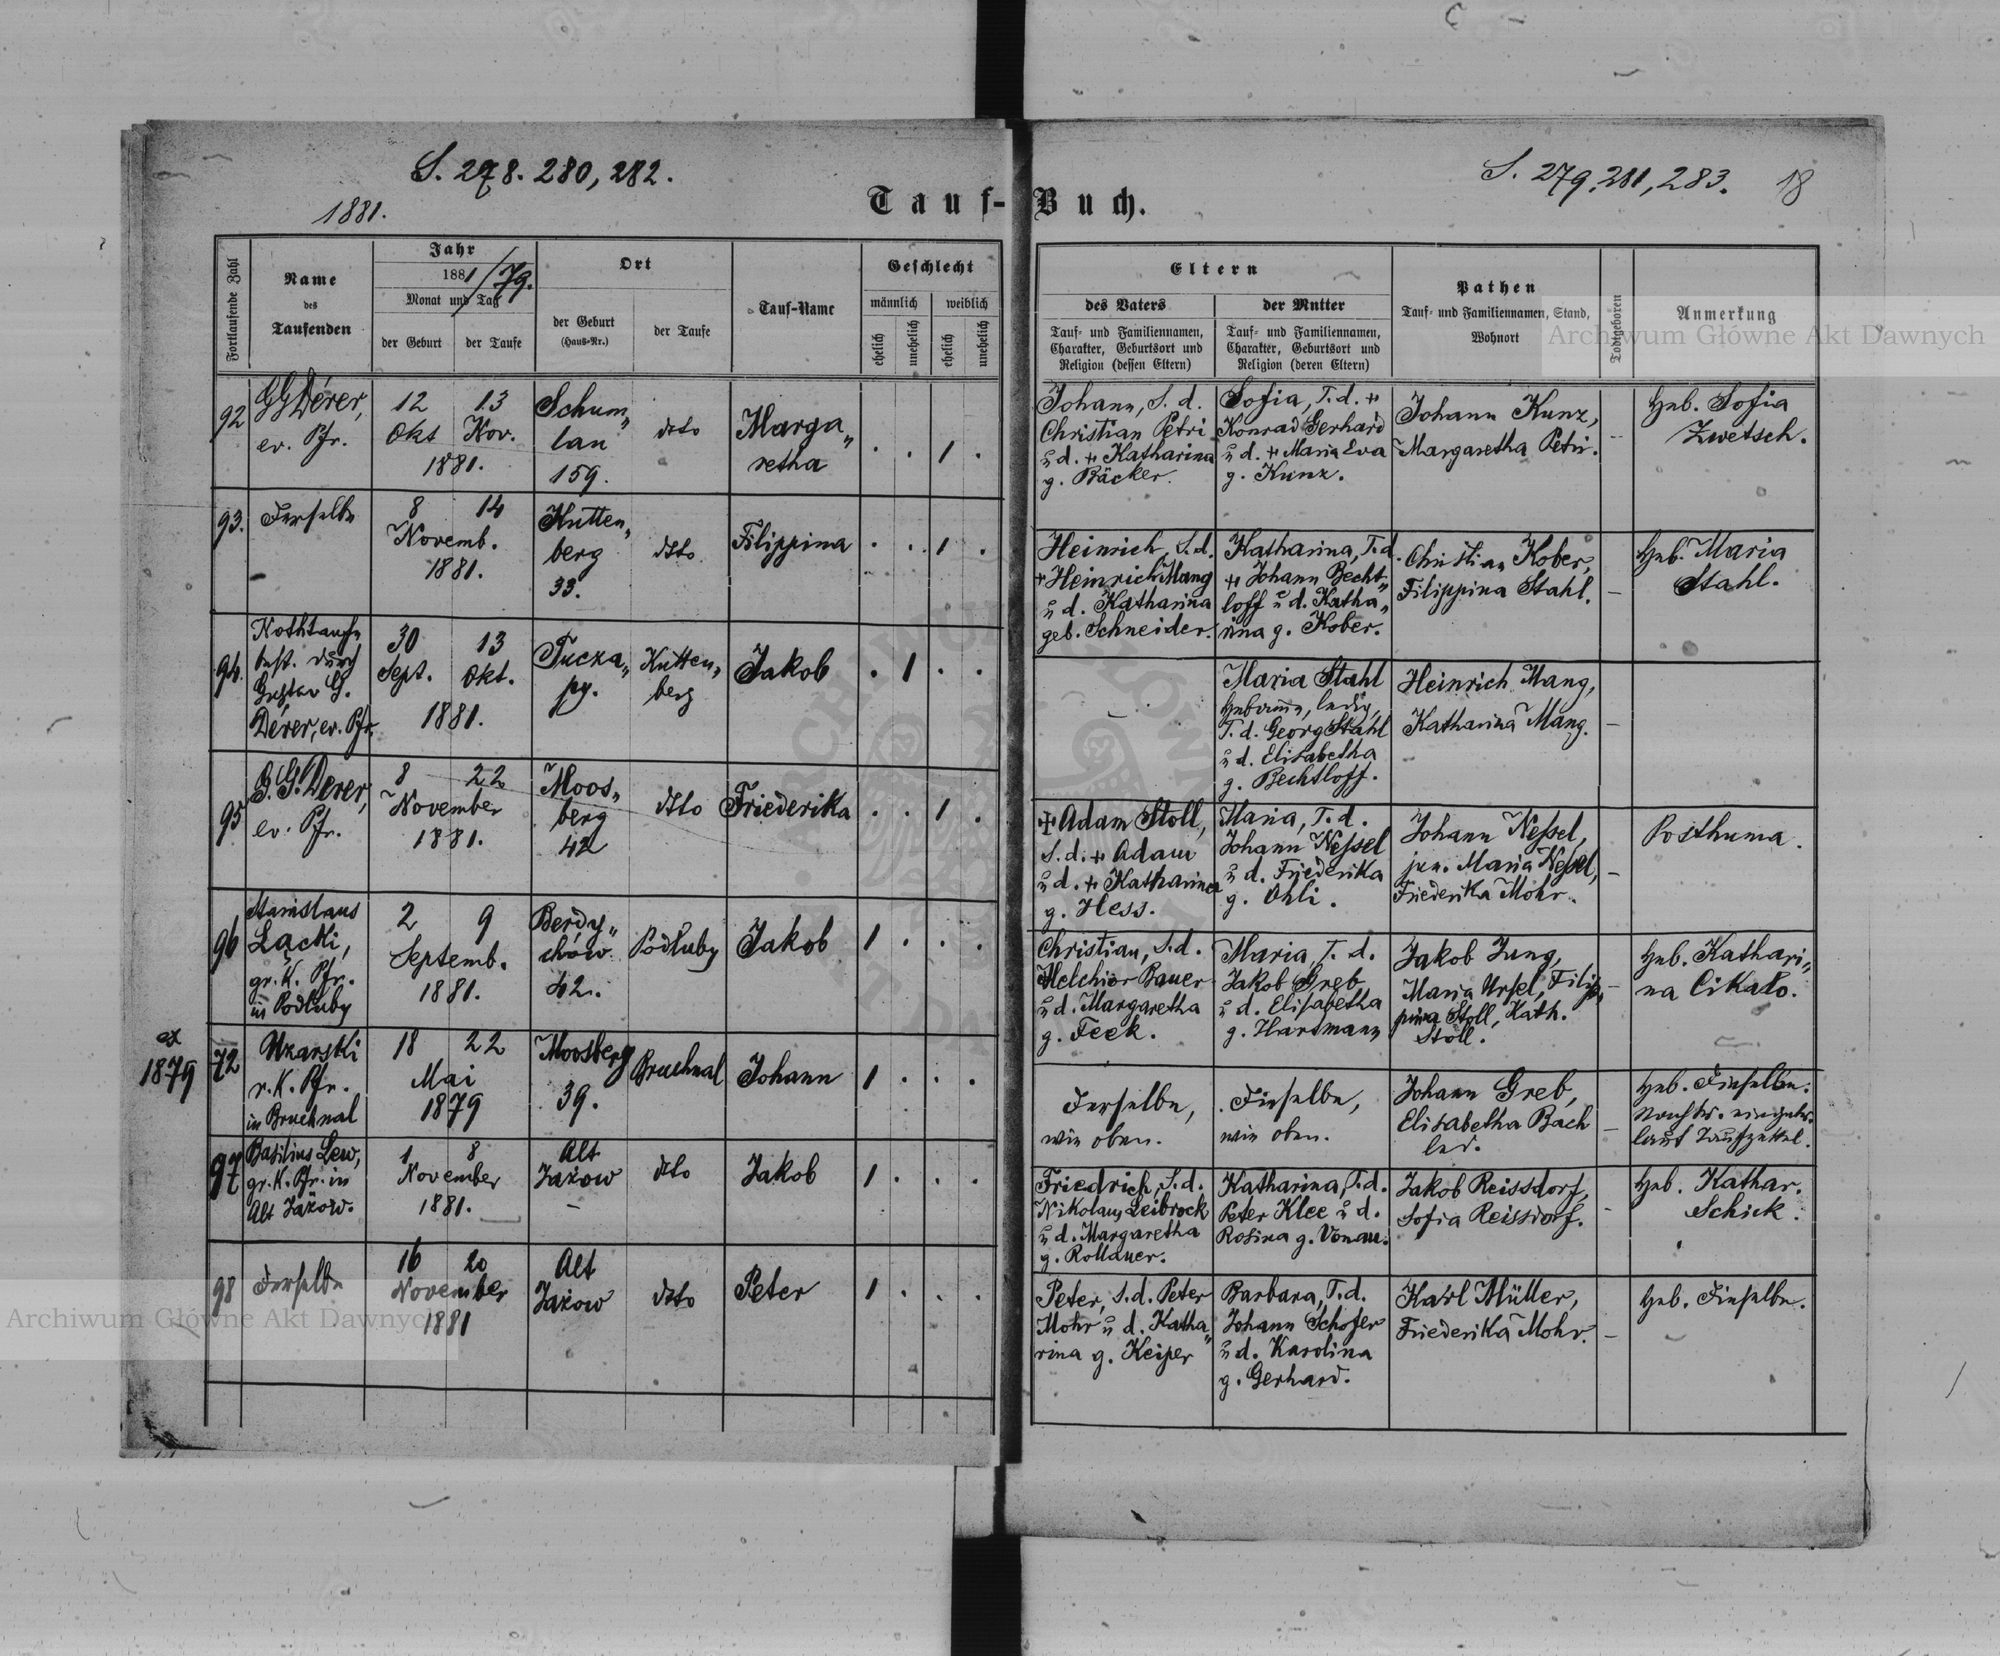 S. 278. 280, 282.
1881.
S. 279, 281, 283.
18
Tauf-Buch.
Fortlaufende Zahl
Name
des
Taufenden
Jahr
1881/79.
Monat und Tag
der Geburt
der Taufe
Ort
der Geburt
(Haus-Nr.)
der Taufe
Tauf-Name
Geschlecht
männlich
weiblich
ehelich
unehelich
ehelich
unehelich
Eltern
des Vaters
Tauf- und Familiennamen,
Charakter, Geburtsort und
Religion (dessen Eltern)
der Mutter
Tauf- und Familiennamen,
Charakter, Geburtsort und
Religion (deren Eltern)
Pathen
Tauf- und Familiennamen, Stand,
Wohnort
Todtgeboren
Anmerkung
Archiwum Główne Akt Dawnych
92
GG Dérer,
ev. Pfr.
12 13
Okt Nov.
1881.
Schum„
lau
159.
dto
Marga„
retha
. . 1 .
Johann, S. d.
Christian Petri
u d. + Katharina
g. Bäcker.
Sofia, T. d. +
Konrad Gerhard
u d. + Maria Eva
g. Kunz.
Johann Kunz,
Margaretha Petri.
Heb. Sofia
Zwetsch.
93.
Derselbe
8 14
Novemb.
1881.
Kutten„
berg
33.
dto
Filippina
. . 1 .
Heinrich, S. d.
+ Heinrich Mang
u d. Katharina
geb. Schneider.
Katharina, T. d.
+ Johann Becht„
loff u d. Katha„
rina g. Kober.
Christian Kober,
Filippina Stahl.
Heb. Maria
Stahl.
94.
Nothtaufe
best. durch
Gustav G.
Dérer, ev. Pfr.
30 13
Sept. Okt.
1881.
Tucza„
py.
Kutten„
berg
Jakob
. 1 . .
Maria Stahl
Hebamme, ledig,
T. d. Georg Stahl
u d. Elisabetha
g. Bechtloff.
Heinrich Mang,
Katharina Mang.
95
G. G. Dérer,
ev. Pfr.
8 22
November
1881.
Moos„
berg
42
dto
Friederika
. . 1 .
+ Adam Stoll,
S. d. + Adam
u d. + Katharina
g. Hess.
Maria, T. d.
Johann Nessel
u d. Friederika
g. Ohli.
Johann Nessel,
jun. Maria Nessel,
Friederika Mohr.
Posthuma.
96
Stanislaus
Łącki,
gr. k. Pfr.
in Podłuby
2 9
Septemb.
1881.
Berdy„
chów
42.
Podłuby
Jakob
1 . . .
Christian, S. d.
Melchior Bauer
u d. Margaretha
g. Feek.
Maria, T. d.
Jakob Greb
u d. Elisabetha
g. Hartmann
Jakob Jung,
Maria Ursel, Filip„
pina Stoll, Kath.
Stoll.
Heb. Kathari„
na Cikało.
ex
1879
72
Uzarski
r. k. Pfr.
in Bruchnal
18 22
Mai
1879
Moosberg
39.
Bruchnal
Johann
1 . . .
Derselbe,
wie oben.
Dieselbe,
wie oben.
Johann Greb,
Elisabetha Bach
led.
Heb. Dieselbe.
laut Taufzettel.
97
Basilius Lew,
gr. k. Pfr. in
Alt Jażow.
1 8
November
1881.
Alt
Jażow
dto
Jakob
1 . . .
Friedrich, S. d.
Nikolaus Leibrock
u d. Margaretha
g. Rollauer.
Katharina, T. d.
Peter Klee u d.
Rosina g. Vonau.
Jakob Reissdorf,
Sofia Reissdorf.
Heb. Kathar.
Schick.
98
Derselbe
16 20
November
1881
Alt
Jażow
dto
Peter
1 . . .
Peter, S. d. Peter
Mohr u d. Katha„
rina g. Keiper
Barbara, T. d.
Johann Schofer
u d. Karolina
g. Gerhard.
Karl Müller,
Friederika Mohr.
Heb. Dieselbe.
Archiwum Główne Akt Dawnych